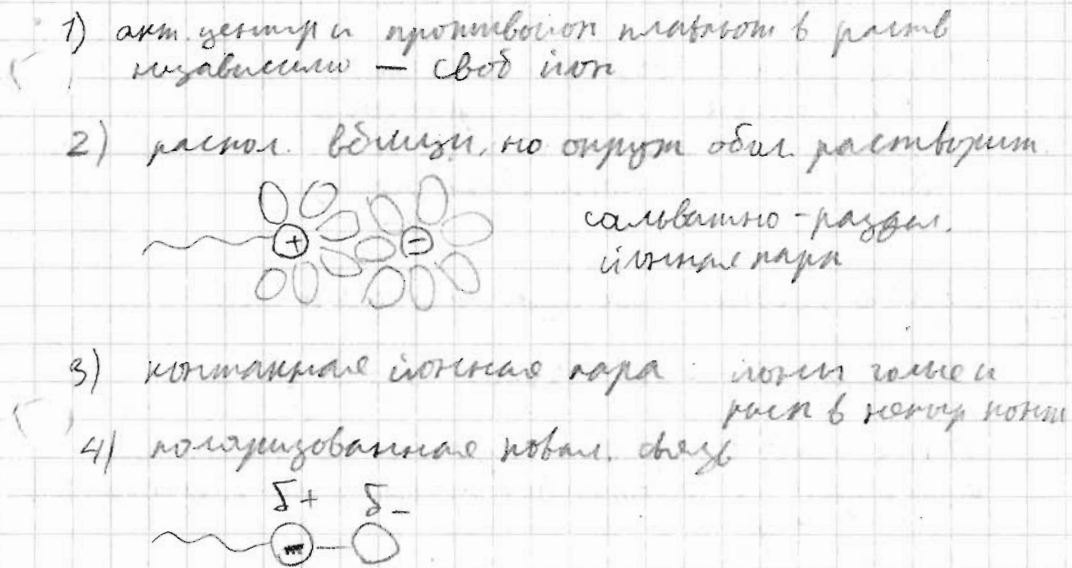 1) акт. центр и противоион плавают в раств
независимо — своб ион
2) распол. вблизи, но окруж обол. растворит.
+ −
сольватно-раздел.
ионная пара
3) контактная ионная пара ионы голые и
расп в непоср конт
4) поляризованная ковал. связь
δ+ δ−